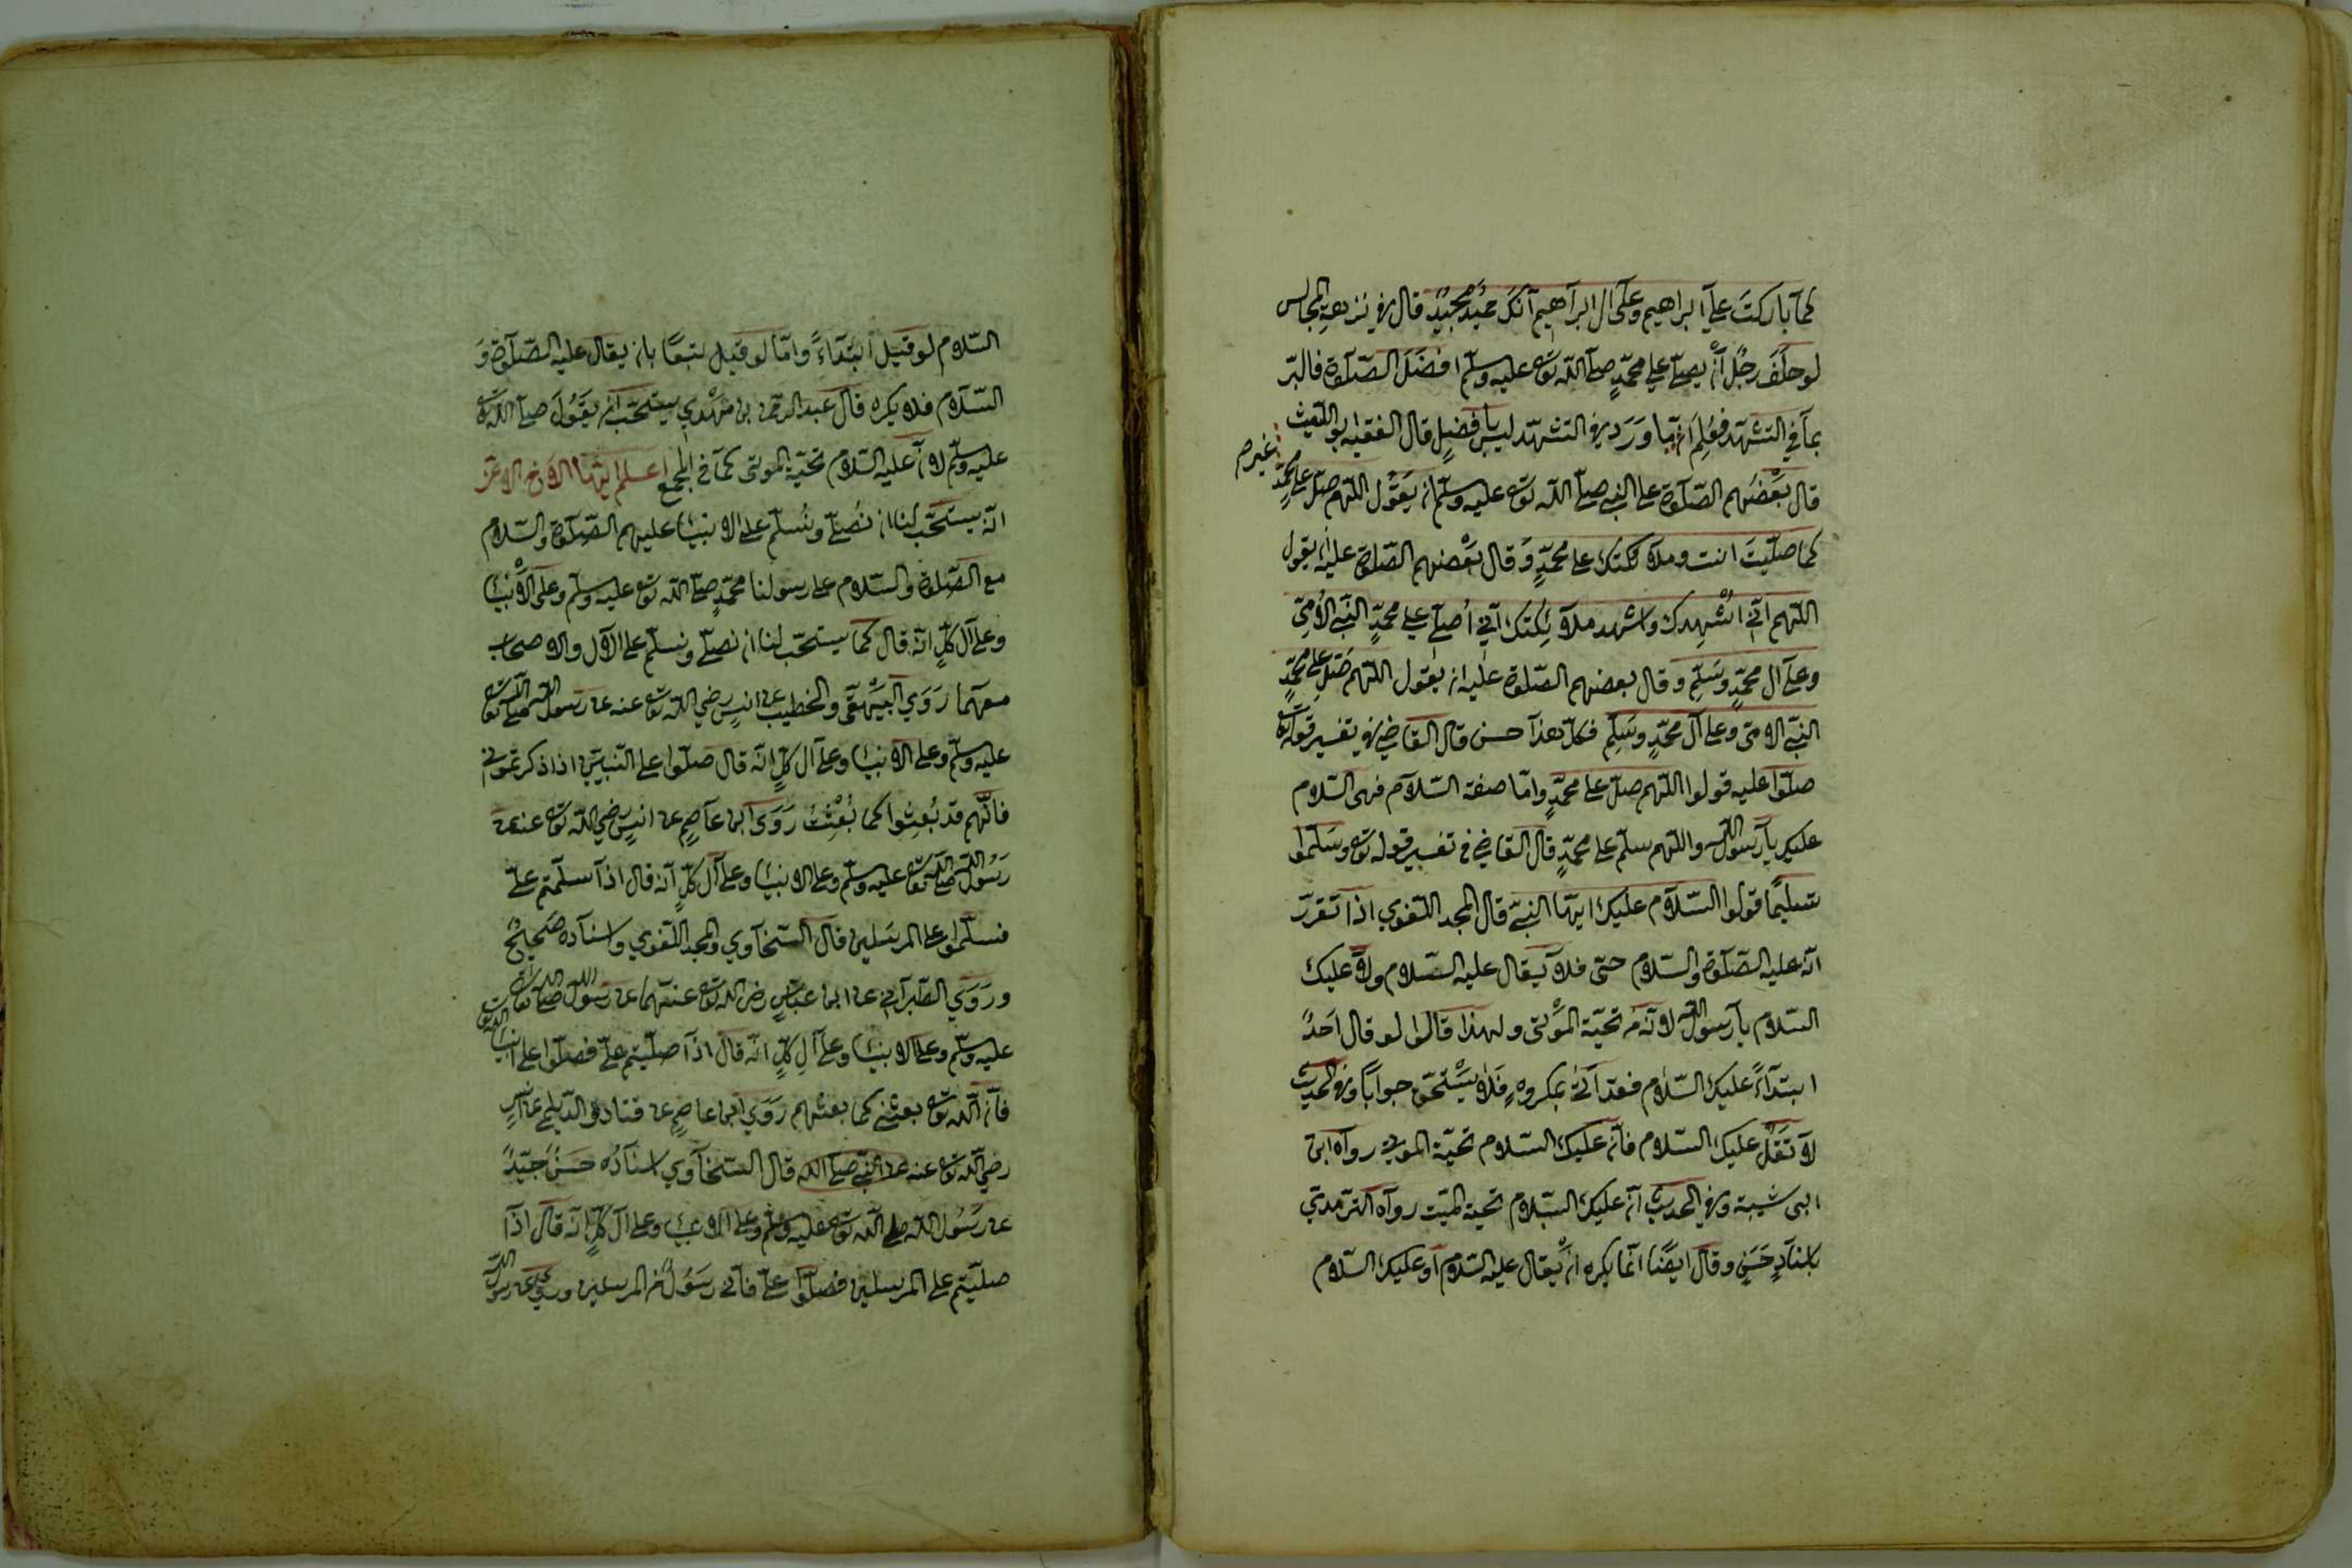 كما باركت على ابراهيم وعلى ال ابراهيم انك حميد مجيد قال في نزهة المجالس
لو حلف رجل ان يصلى على محمد صلى الله تع عليه وسلم افضل الصلوة فالبر
بما في التشهد فعلم ان ما ورد في التشهد ليس بافضل قال الفقيه ابو الليث
قال بعضهم الصلوة على النبي صلى الله تع عليه وسلم ان يقول اللهم صل على محمد
كما صليت انت وملائكتك على محمد وقال بعضهم الصلوة عليه ان يقول
اللهم انى اشهدك واشهد ملائكتك انى اصلى على محمد النبي الامى
وعلى آل محمد وسلم وقال بعضهم الصلوة عليه ان يقول اللهم صل على محمد
النبي الامى وعلى آل محمد وسلم فكل هذا حسن قال القاضي في تفسير قوله تع
صلوا عليه قولوا اللهم صل على محمد واما صفة السلام فهى السلام
عليك يا رسول الله واللهم سلم على محمد قال القاضي في تفسير قوله تع وسلموا
تسليما قولوا السلام عليك ايها النبي قال المجد اللغوي اذا تقرر
انه عليه الصلوة والسلام حى فلا يقال عليه السلام ولا عليك
السلام يا رسول الله لانه تحية الموتى ولهذا قالوا لو قال احد
ابتداء عليك السلام فقد اتى بمكروه فلا يستحق جوابا وفي الحديث
لا تقل عليك السلام فان عليك السلام تحية الموتى رواه ابن
ابى شيبة وفي الحديث ان عليك السلام تحية الميت رواه الترمذي
باسناد حسن وقال ايضا انما يكره ان يقال عليه السلام او عليك السلام
السلام لو قيل ابتداء واما لو قيل تبعا بان يقال عليه الصلوة و
السلام فلا يكره قال عبد الرحمن بن مهدي يستحب ان يقول صلى الله تع
عليه وسلم لان عليه السلام تحية الموتى كما في المجمع اعلم ايها الاخ الاعز
انه يستحب لنا ان نصلى ونسلم على الانبياء عليهم الصلوة والسلام
مع الصلوة والسلام على رسولنا محمد صلى الله تع عليه وسلم وعلى الانبياء
وعلى آل كل انه قال كما يستحب لنا ان نصلى ونسلم على الآل والاصحاب
معهما روي البيهقى والخطيب عن انس رضي الله تع عنه عن رسول الله صلى الله تع
عليه وسلم وعلى الانبياء وعلى آل كل انه قال صلوا على النبيين اذا ذكرتمونى
فانهم قد بعثوا كما بعثت روى ابن عاصم عن انس رضي الله تع عنه عن
رسول الله صلى الله تع عليه وسلم وعلى الانبياء وعلى آل كل انه قال اذا سلمتم على
فسلموا على المرسلين قال السخاوي والمجد اللغوي واسناده صحيح
وروي الطبراني عن ابن عباس رضى الله تع عنهما عن رسول الله صلى الله تع
عليه وسلم وعلى الانبياء وعلى آل كل انه قال اذا صليتم على فصلوا على انبياء الله تع
فان الله تع بعثنى كما بعثهم روي ابن عاصم عن قتادة والديلمى عن انس
رضي الله تع عنه عن النبي صلى الله قال السخاوي اسناده حسن جيد
عن رسول الله صلى الله تع عليه وسلم وعلى الانبياء وعلى آل كل انه قال اذا
صليتم على المرسلين فصلوا على فانى رسول من المرسلين وروي عن رسول الله